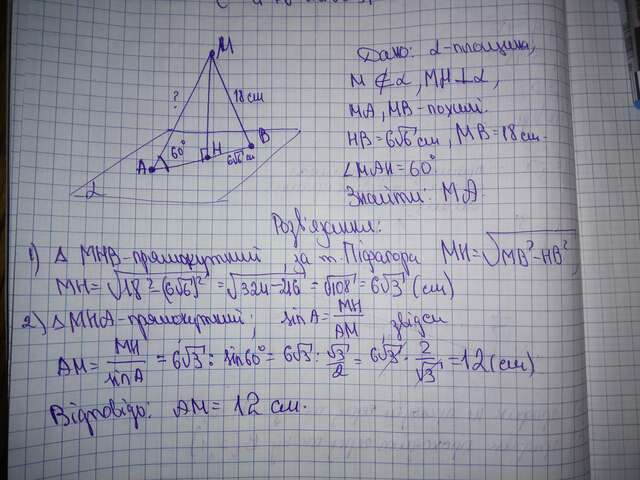 M
?
18 cm
60°
H
B
A
6√6 см
α
Дано: α-площина,
M ∉ α, MH⊥α,
MA, MB-похилі.
HB=6√6 см, MB=18 см.
∠MAH=60°
Знайти: MA.
Розв'язання:
1) Δ MHB-прямокутний, за т. Піфагора MH=√MB²-HB²,
MH=√18²-(6√6)²=√324-216=√108=6√3 (см)
2) ΔMHA-прямокутний; sinA=MH/AM, звідси
AM=MH/sinA=6√3:sin60°=6√3:√3/2=6√3·2/√3=12 (см)
Відповідь: AM=12 см.